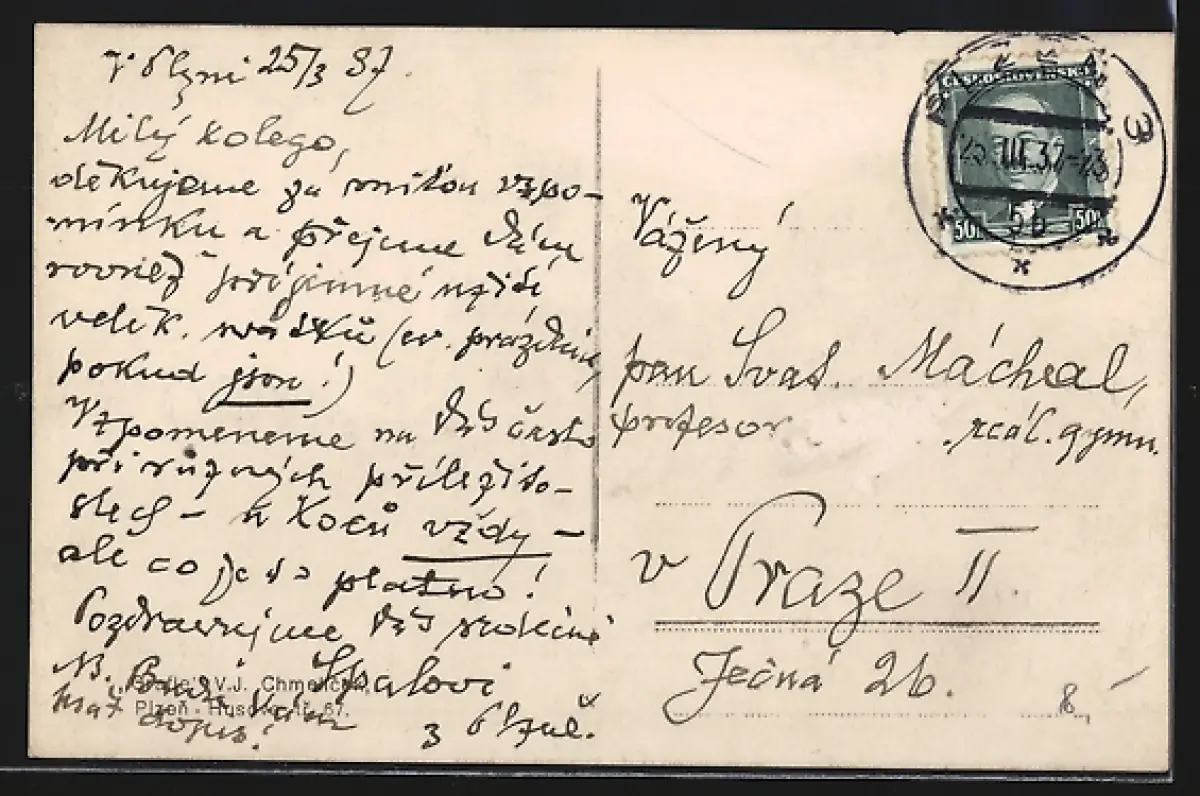 V Plzni 25/3 37.
Milý kolego,
děkujeme za milou vzpo-
mínku a přejeme Vám
rovněž příjemné užití
velik. svátků (ev. prázdnin,
pokud jsou!)
Vzpomeneme na Vás často
při různých příležito-
stech – u Koců vždy –
ale co je to platno!
Pozdravujeme Vás srdečně
Špalovi
z Plzně.
NB. Vám
dopis!
Grafie V.J. Chmelíček,
Plzeň - Husova tř. 67.
ČESKOSLOVENSKO
50h 50h
PLZEŇ 3
25.III.37-13
5b
Vážený
pan Svat. Máchal,
profesor reál. gymn.
v Praze II.
Ječná 26.
8